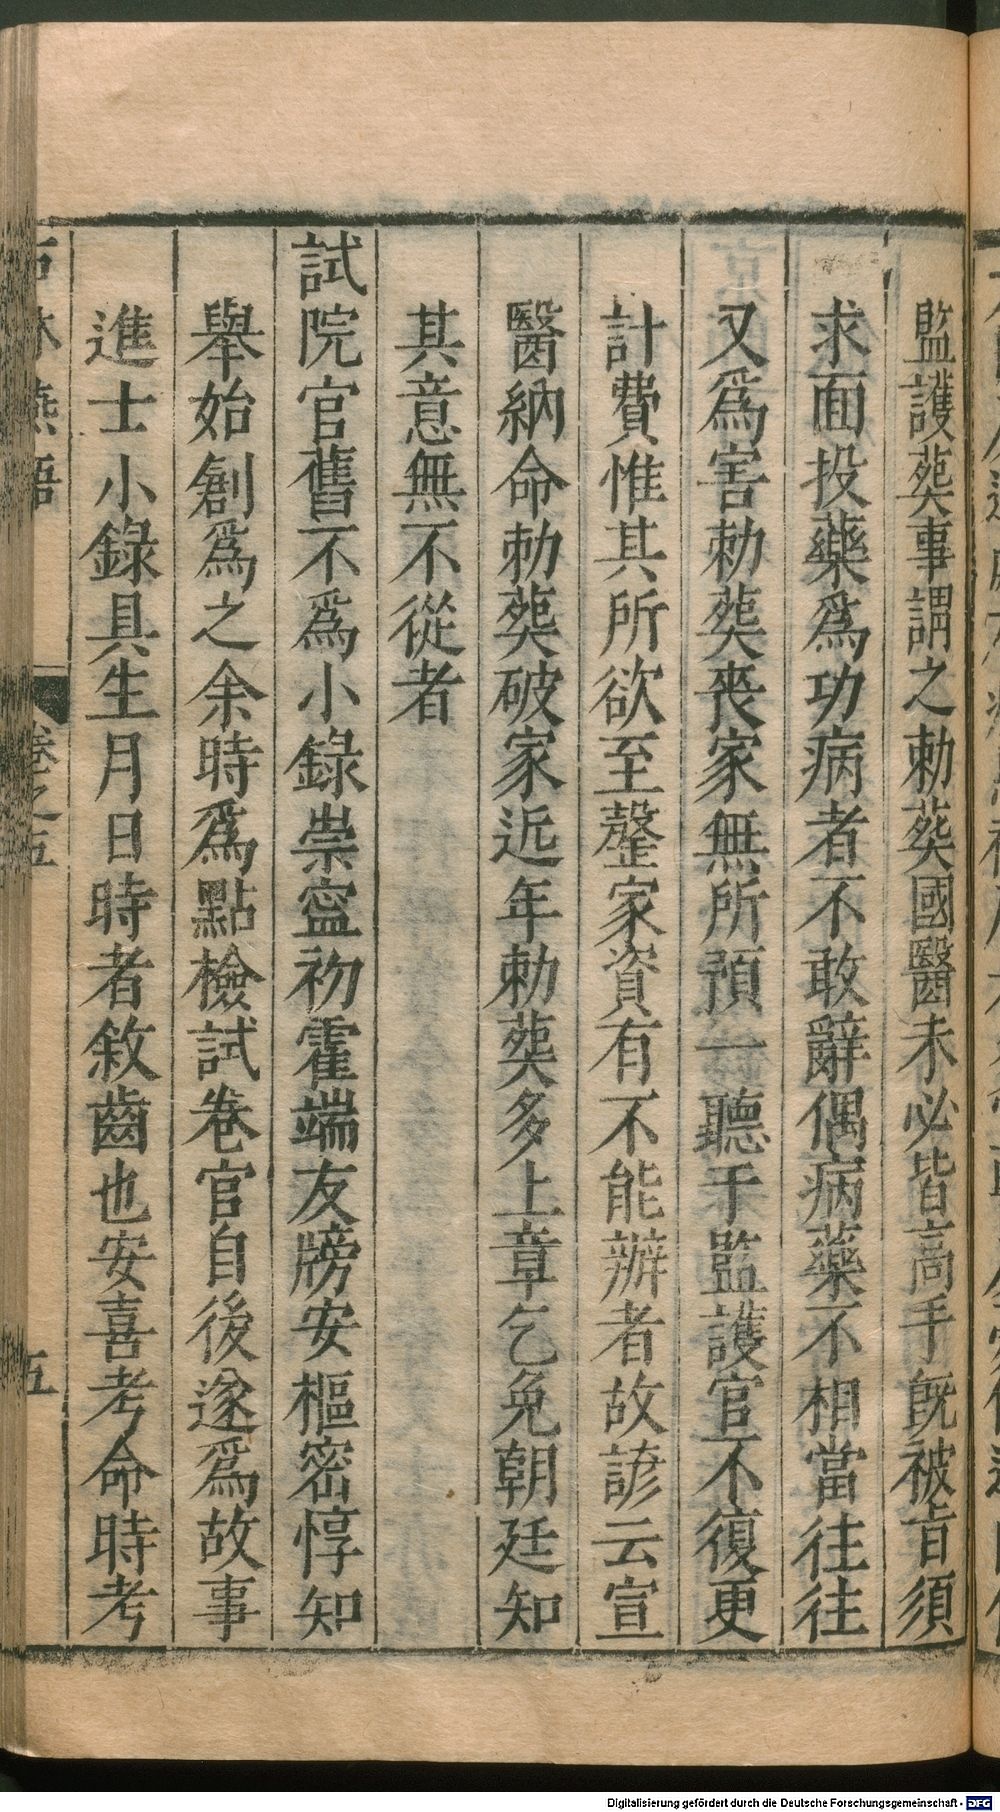 監護葬事謂之勅葬國醫未必皆高手旣被旨須
求面投藥爲功病者不敢辭偶病藥不相當往往
又爲害勅葬喪家無所預一聽于監護官不復更
計費惟其所欲至罄家資有不能辦者故諺云宣
醫納命勅葬破家近年勅葬多上章乞免朝廷知
其意無不從者
試院官舊不爲小錄崇寧初霍端友牓安樞密惇知
舉始創爲之余時爲點檢試卷官自後遂爲故事
進士小錄具生月日時者敘齒也安喜考命時考
石林燕語 卷之五 五
Digitalisierung gefördert durch die Deutsche Forschungsgemeinschaft - DFG